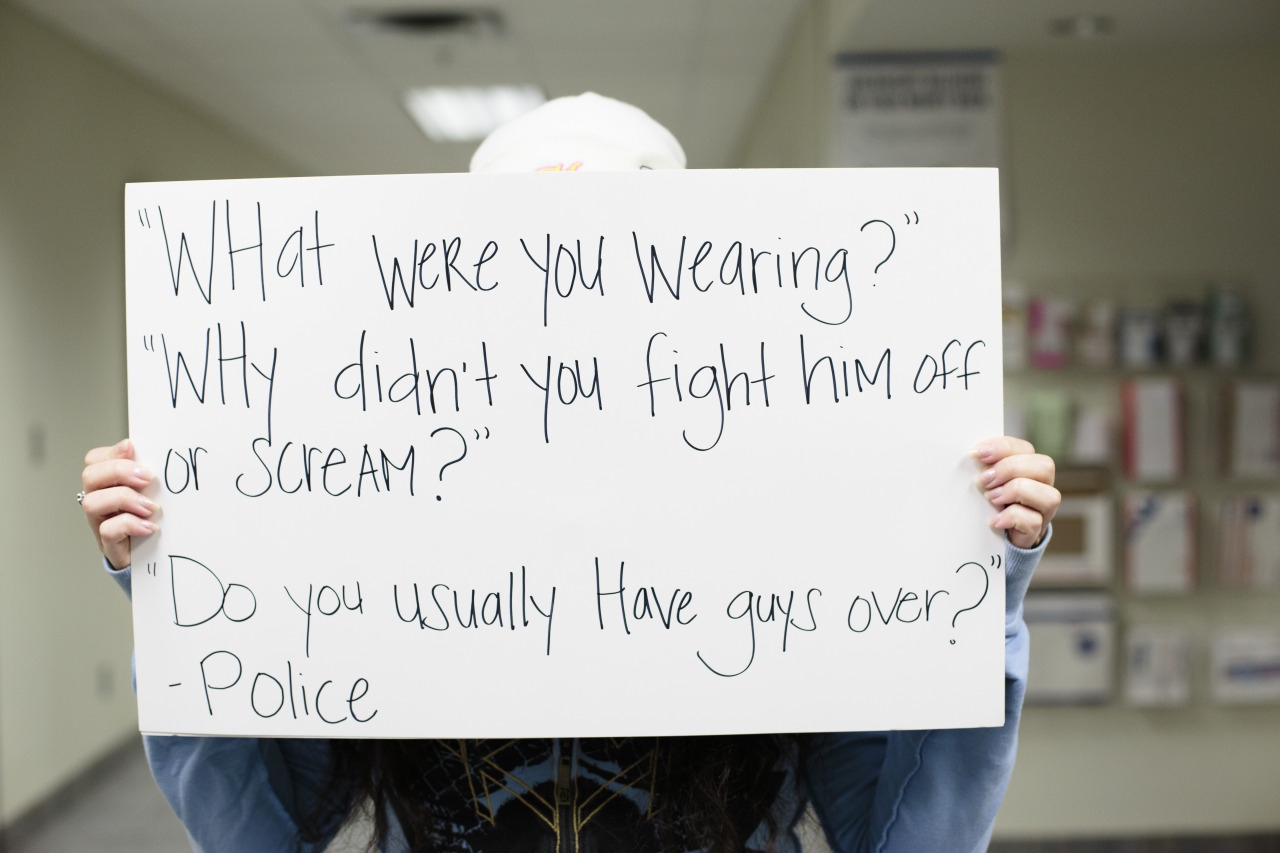 "WHat weRe you wearing?"
"WHy didn't you fight him off
or ScreAM?"
"Do you usually Have guys over?"
- Police